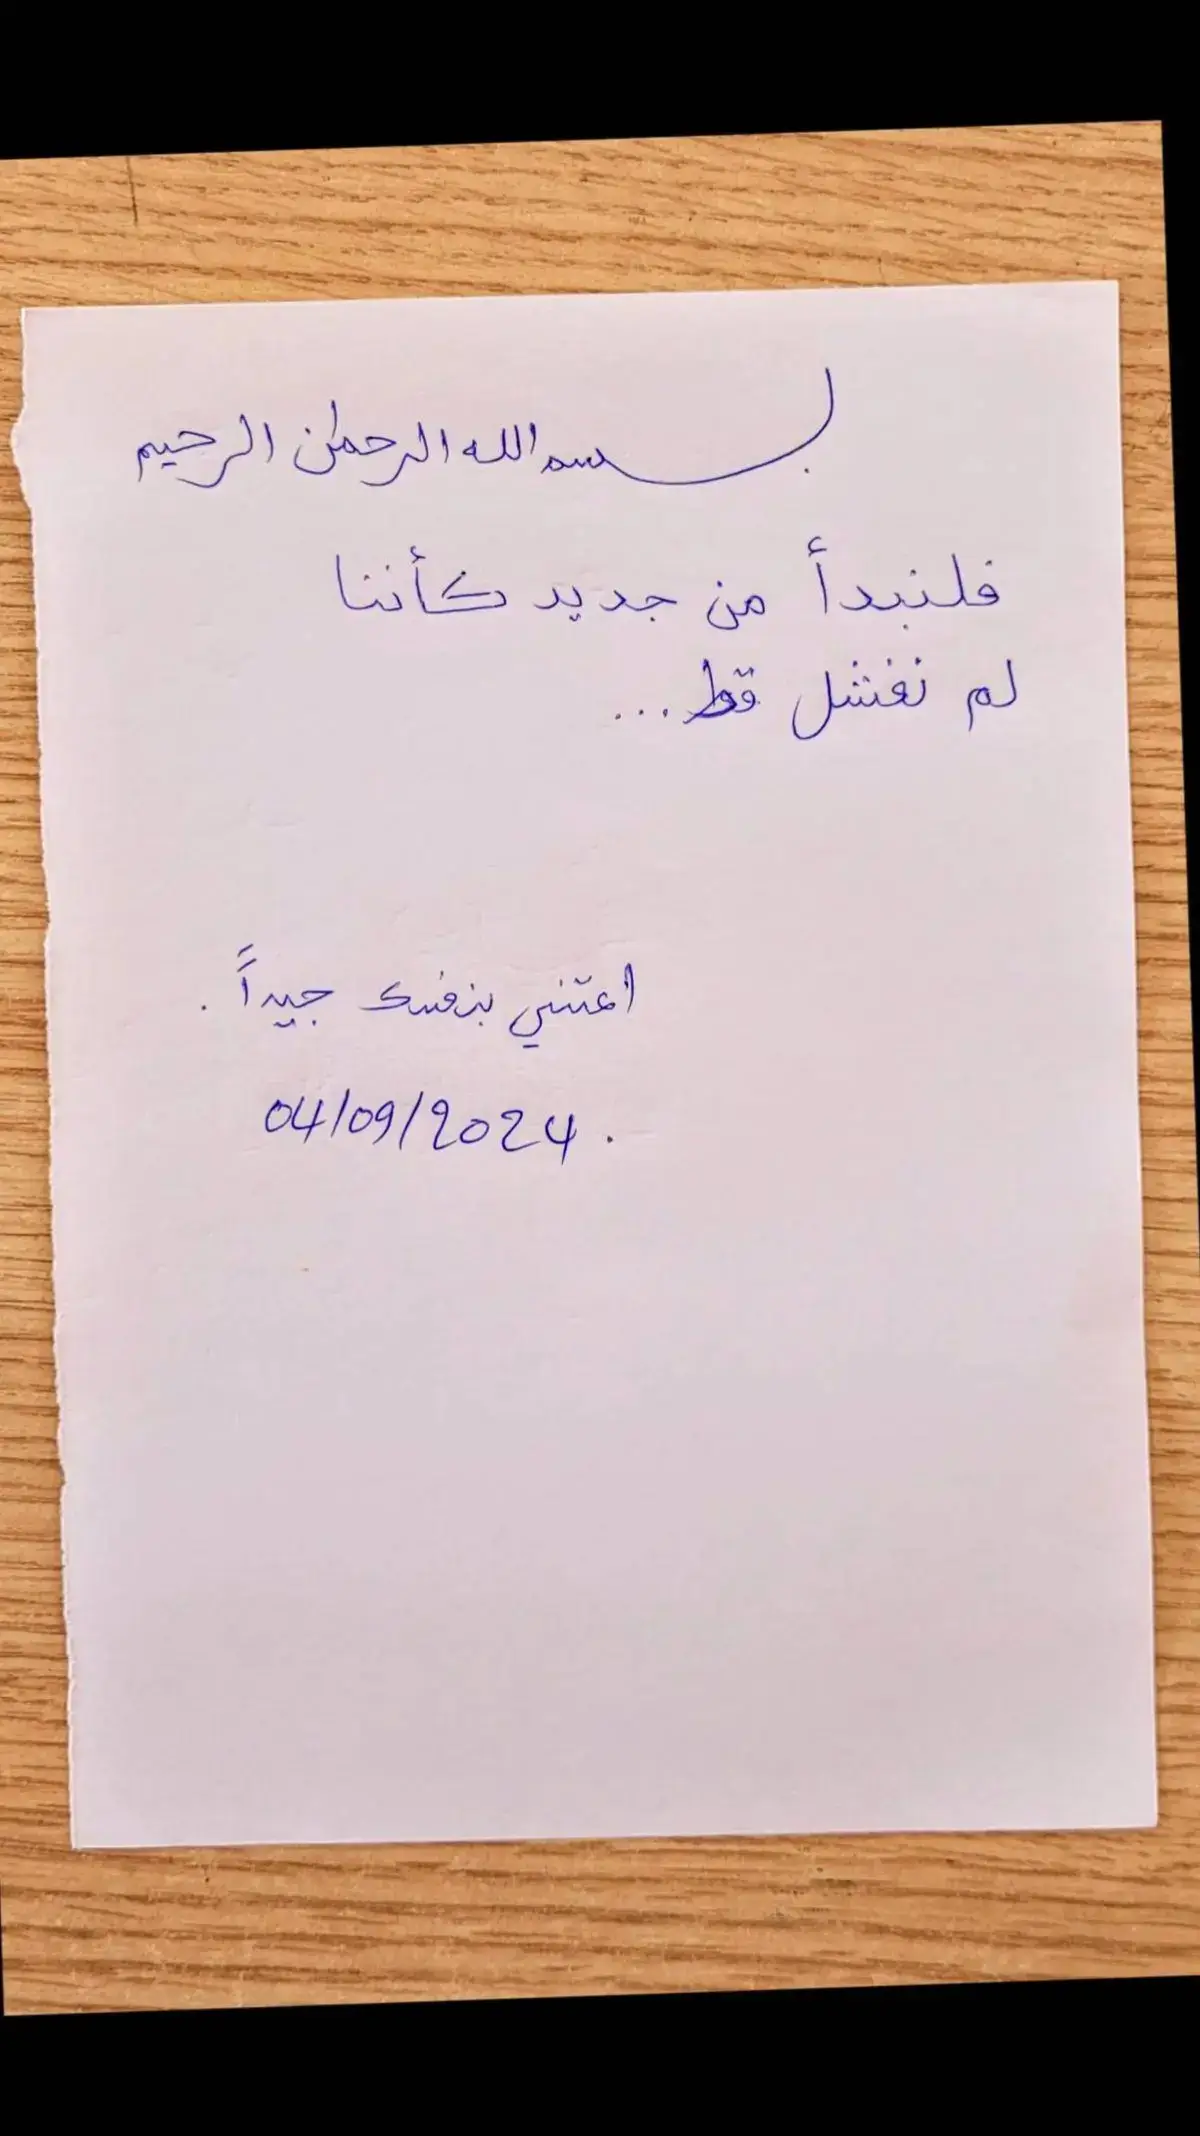 بسم الله الرحمن الرحيم
فلنبدأ من جديد كأننا
لم نفشل قط...
اعتني بنفسك جيداً.
04/09/2024.